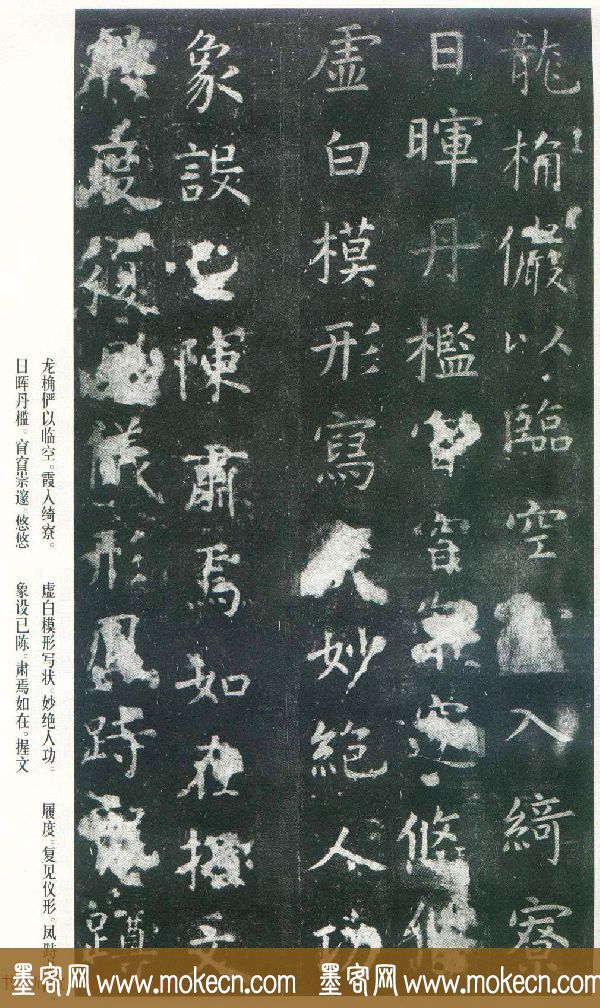 龍桷儼以臨空入綺寮
日暉丹檻窅窅崇邃悠悠
虛白模形寫妙絕人功
象設已陳肅焉如在握文
度復見儀形鳳跱龍蹲
龙桷俨以临空。霞入绮寮。
日晖丹槛。窅窅崇邃。悠悠
虚白模形写状。妙绝人功。
象设已陈。肃焉如在。握文
履度。复见仪形。凤跱
墨客网 www.mokecn.com 墨客网 www.mokecn.com